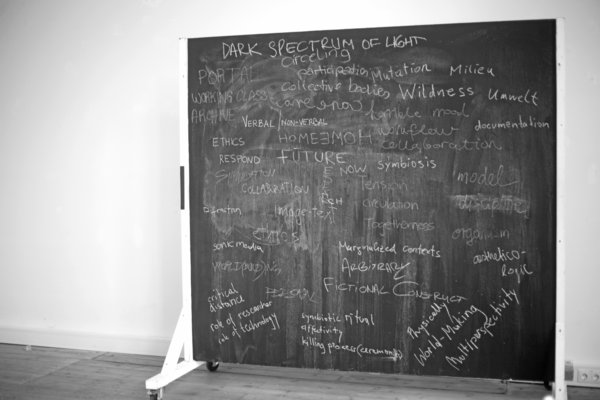 DARK SPECTRUM OF LIGHT
circeling
PORTAL participation Mutation Milieu
WORKING CLASS collective bodies Wildness Umwelt
ARCHIVE care humble mood
VERBAL / NON-VERBAL workflow documentation
ETHICS HOMEEMOH collaboration
RESPOND FUTURE
NOW symbiosis
COLLABORATION tension model
circulation
image-text
Togetherness
ETHICS organism
sonic media Marginalized contexts aesthetico-
logic
ARBITRARY
FICTIONAL CONSTRUCT
critical
distance
role of researcher
role of technology
symbiotic ritual
affectivity
killing process (ceremony)
Physically
World-Making
Multiperspectivity